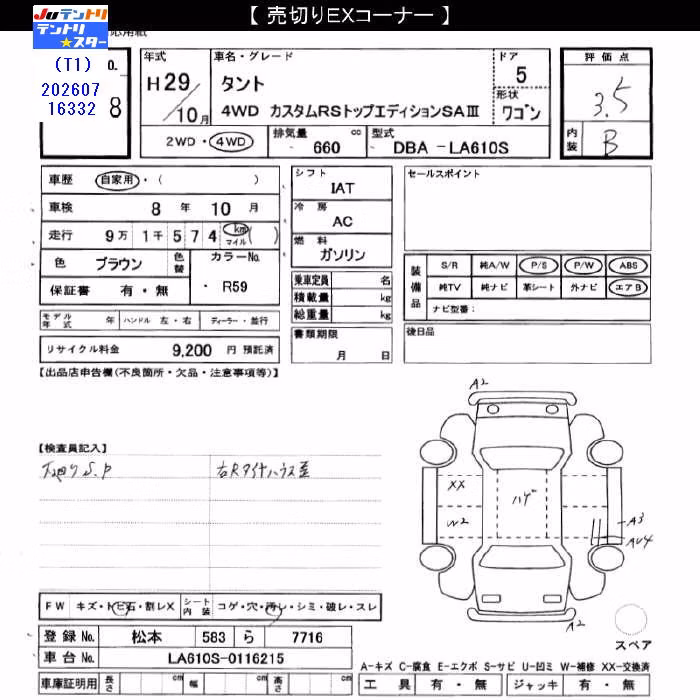 【 売切りEXコーナー 】
JUテントリ
テントリ★スター
応用紙
(T1)
202607
16332
o.
8
年式
H 29 / 10 月
車名・グレード
タント
4WD カスタムRSトップエディションSAⅢ
ドア
5
形状
ワゴン
評価点
3.5
内装
B
2WD・4WD
排気量 660 cc
型式 DBA - LA610S
車歴 自家用・( )
車検 8 年 10 月
走行 9万 1千 5 7 4 km マイル ( )
色 ブラウン
色替
カラーNo.
R59
保証書 有・無
シフト
IAT
冷房
AC
燃料
ガソリン
乗車定員 名
積載量 kg
総重量 kg
セールスポイント
装備品
S/R 純A/W P/S P/W ABS
純TV 純ナビ 革シート 外ナビ エアB
ナビ型番:
モデル年式 年 ハンドル 左・右 ディーラー・並行
書類期限
月 日
後日品
リサイクル料金 9,200 円 預託済
【出品店申告欄(不良箇所・欠品・注意事項等)】
【検査員記入】
下廻りS.P
右Rタイヤハウス歪
A2
XX
W2
ハゲ
A3
AU4
A2
スペア
FW キズ・トビ石・割レX
シート内装 コゲ・穴・汚レ・シミ・破レ・スレ
登録No. 松本 583 ら 7716
車台No. LA610S-0116215
A-キズ C-腐食 E-エクボ S-サビ U-凹ミ W-補修 XX-交換済
車庫証明用 長さ cm 幅 cm 高さ cm
工具 有・無 ジャッキ 有・無